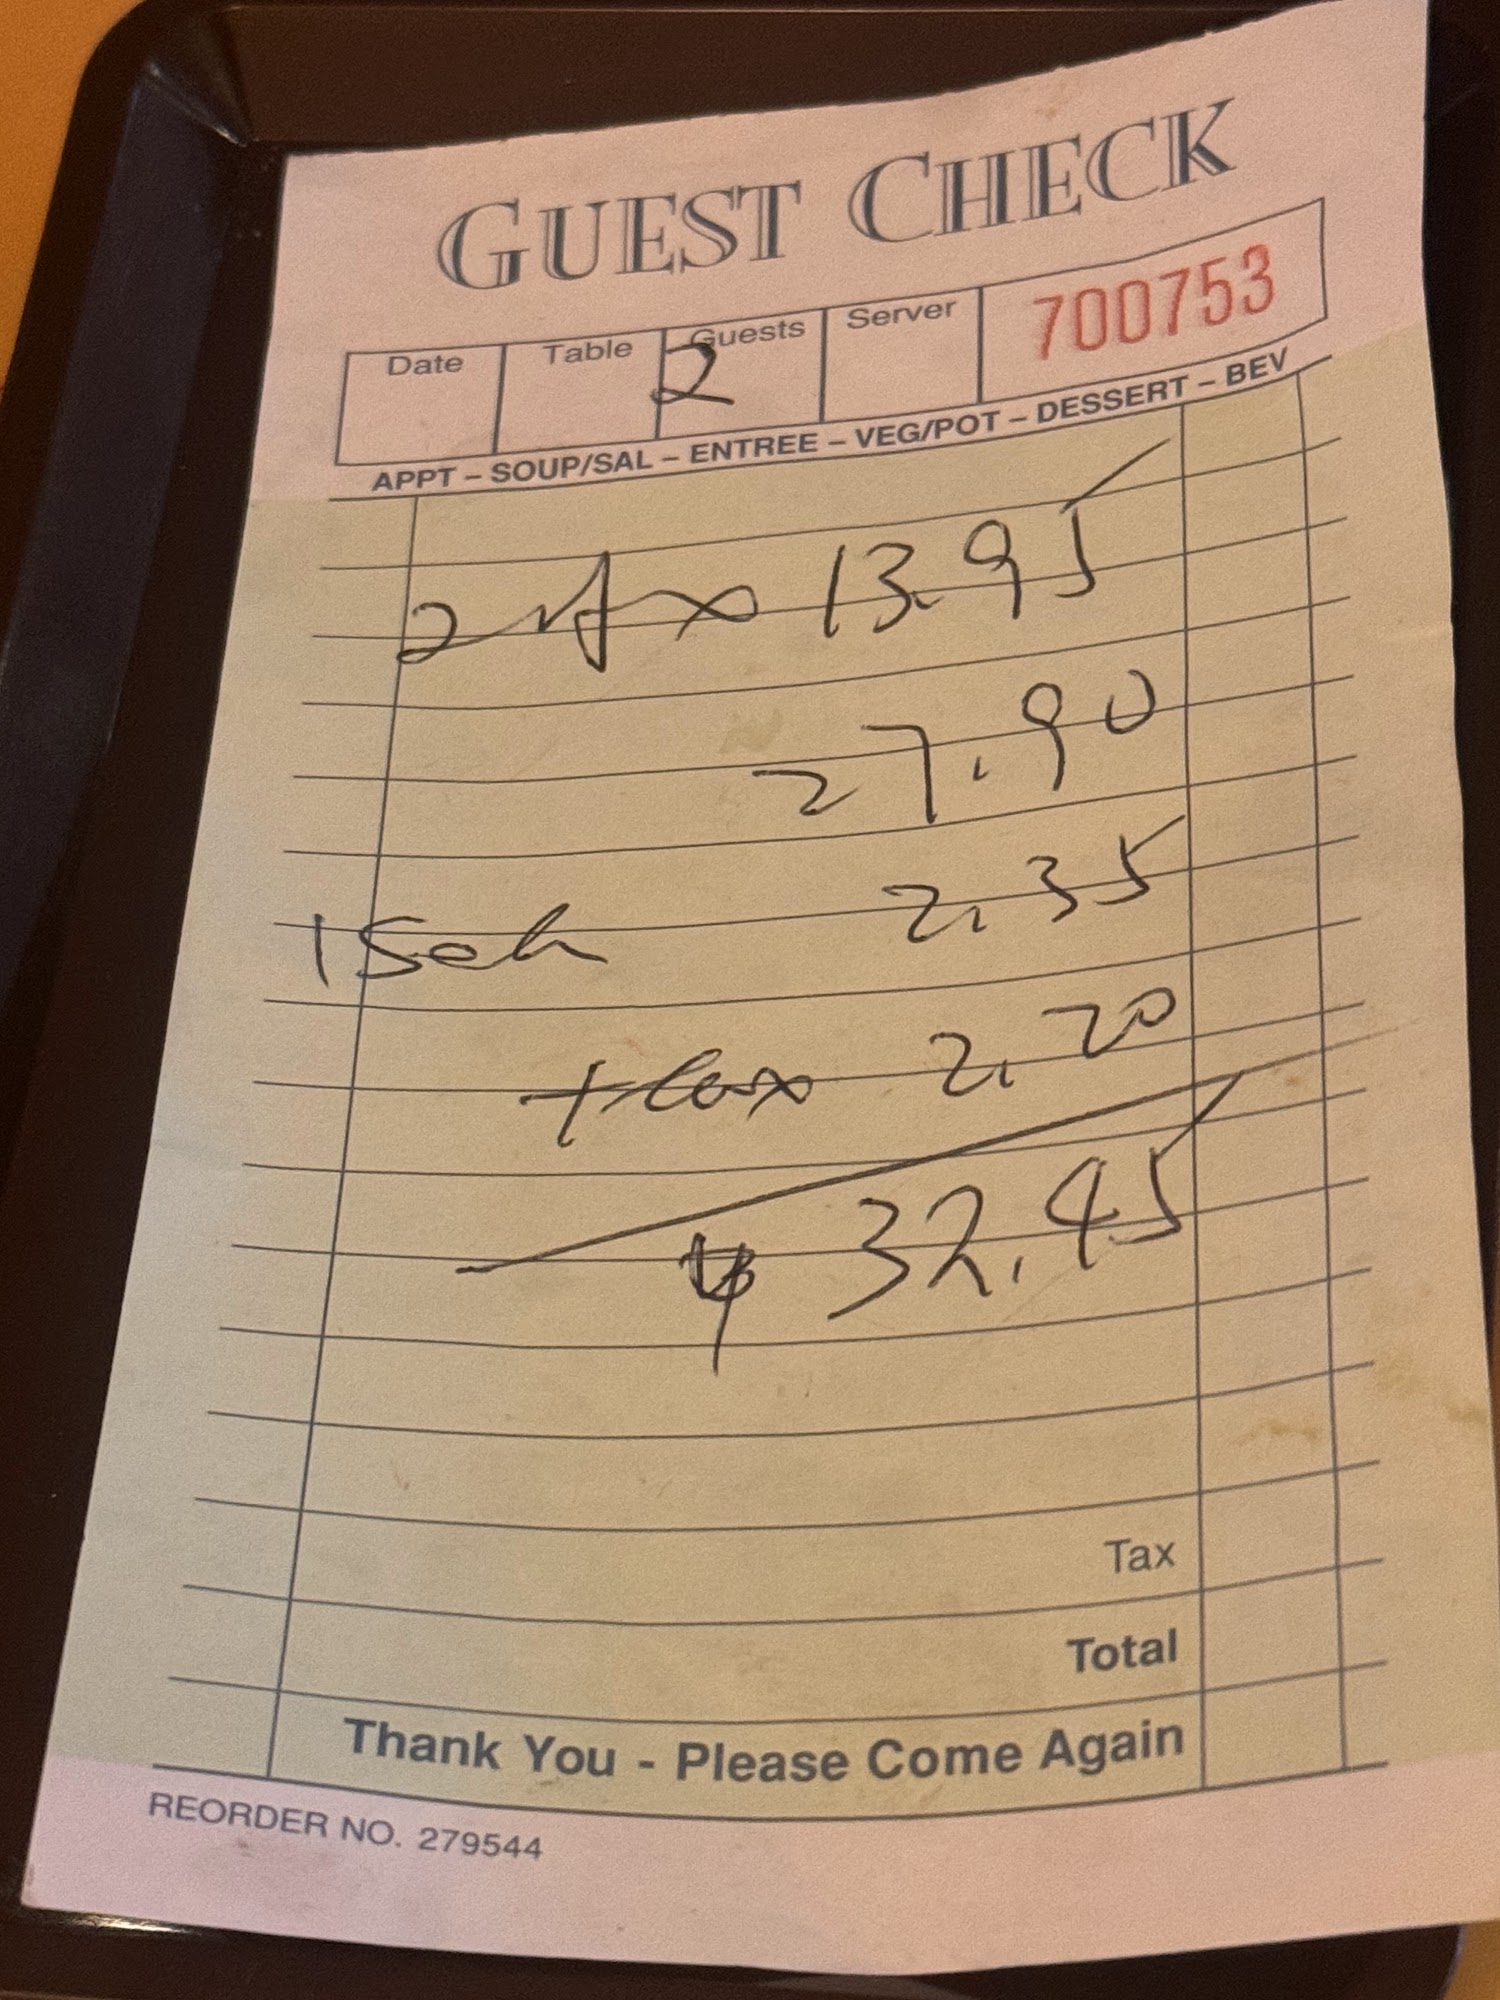 GUEST CHECK
Date Table Guests Server 700753
2
APPT – SOUP/SAL – ENTREE – VEG/POT – DESSERT – BEV
2 x 13.95
27.90
1 2.35
+ tax 2.20
$ 32.45
Tax
Total
Thank You - Please Come Again
REORDER NO. 279544